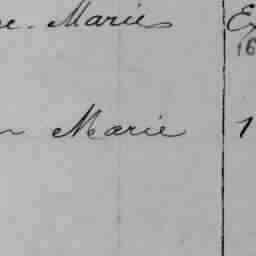 Marie
16
Marie 1